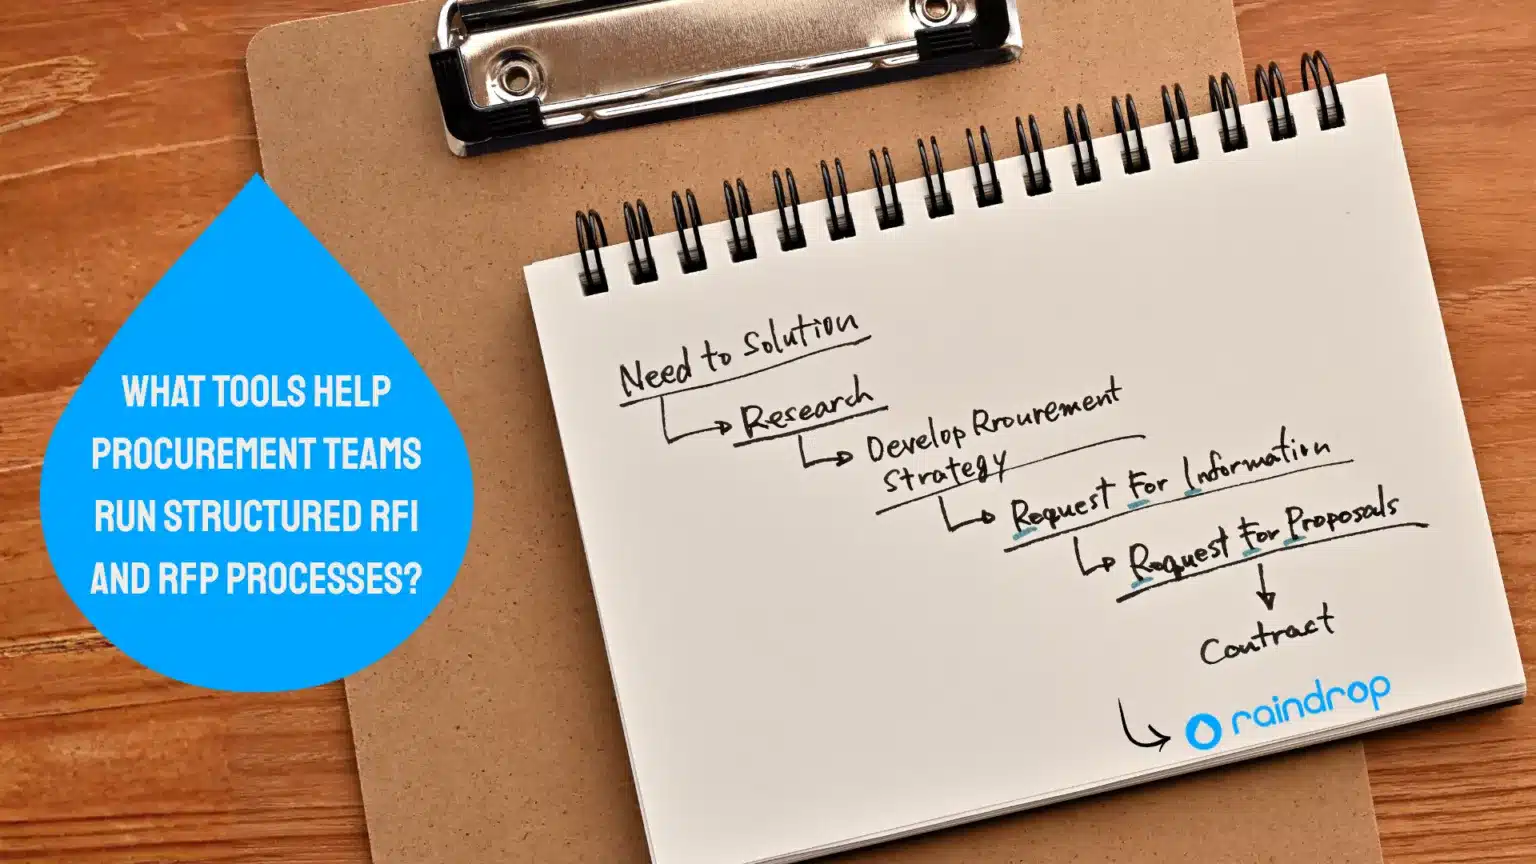 WHAT TOOLS HELP
PROCUREMENT TEAMS
RUN STRUCTURED RFI
AND RFP PROCESSES?
Need to Solution
Research
Develop Prourement
Strategy
Request For Information
Request For Proposals
Contract
raindrop